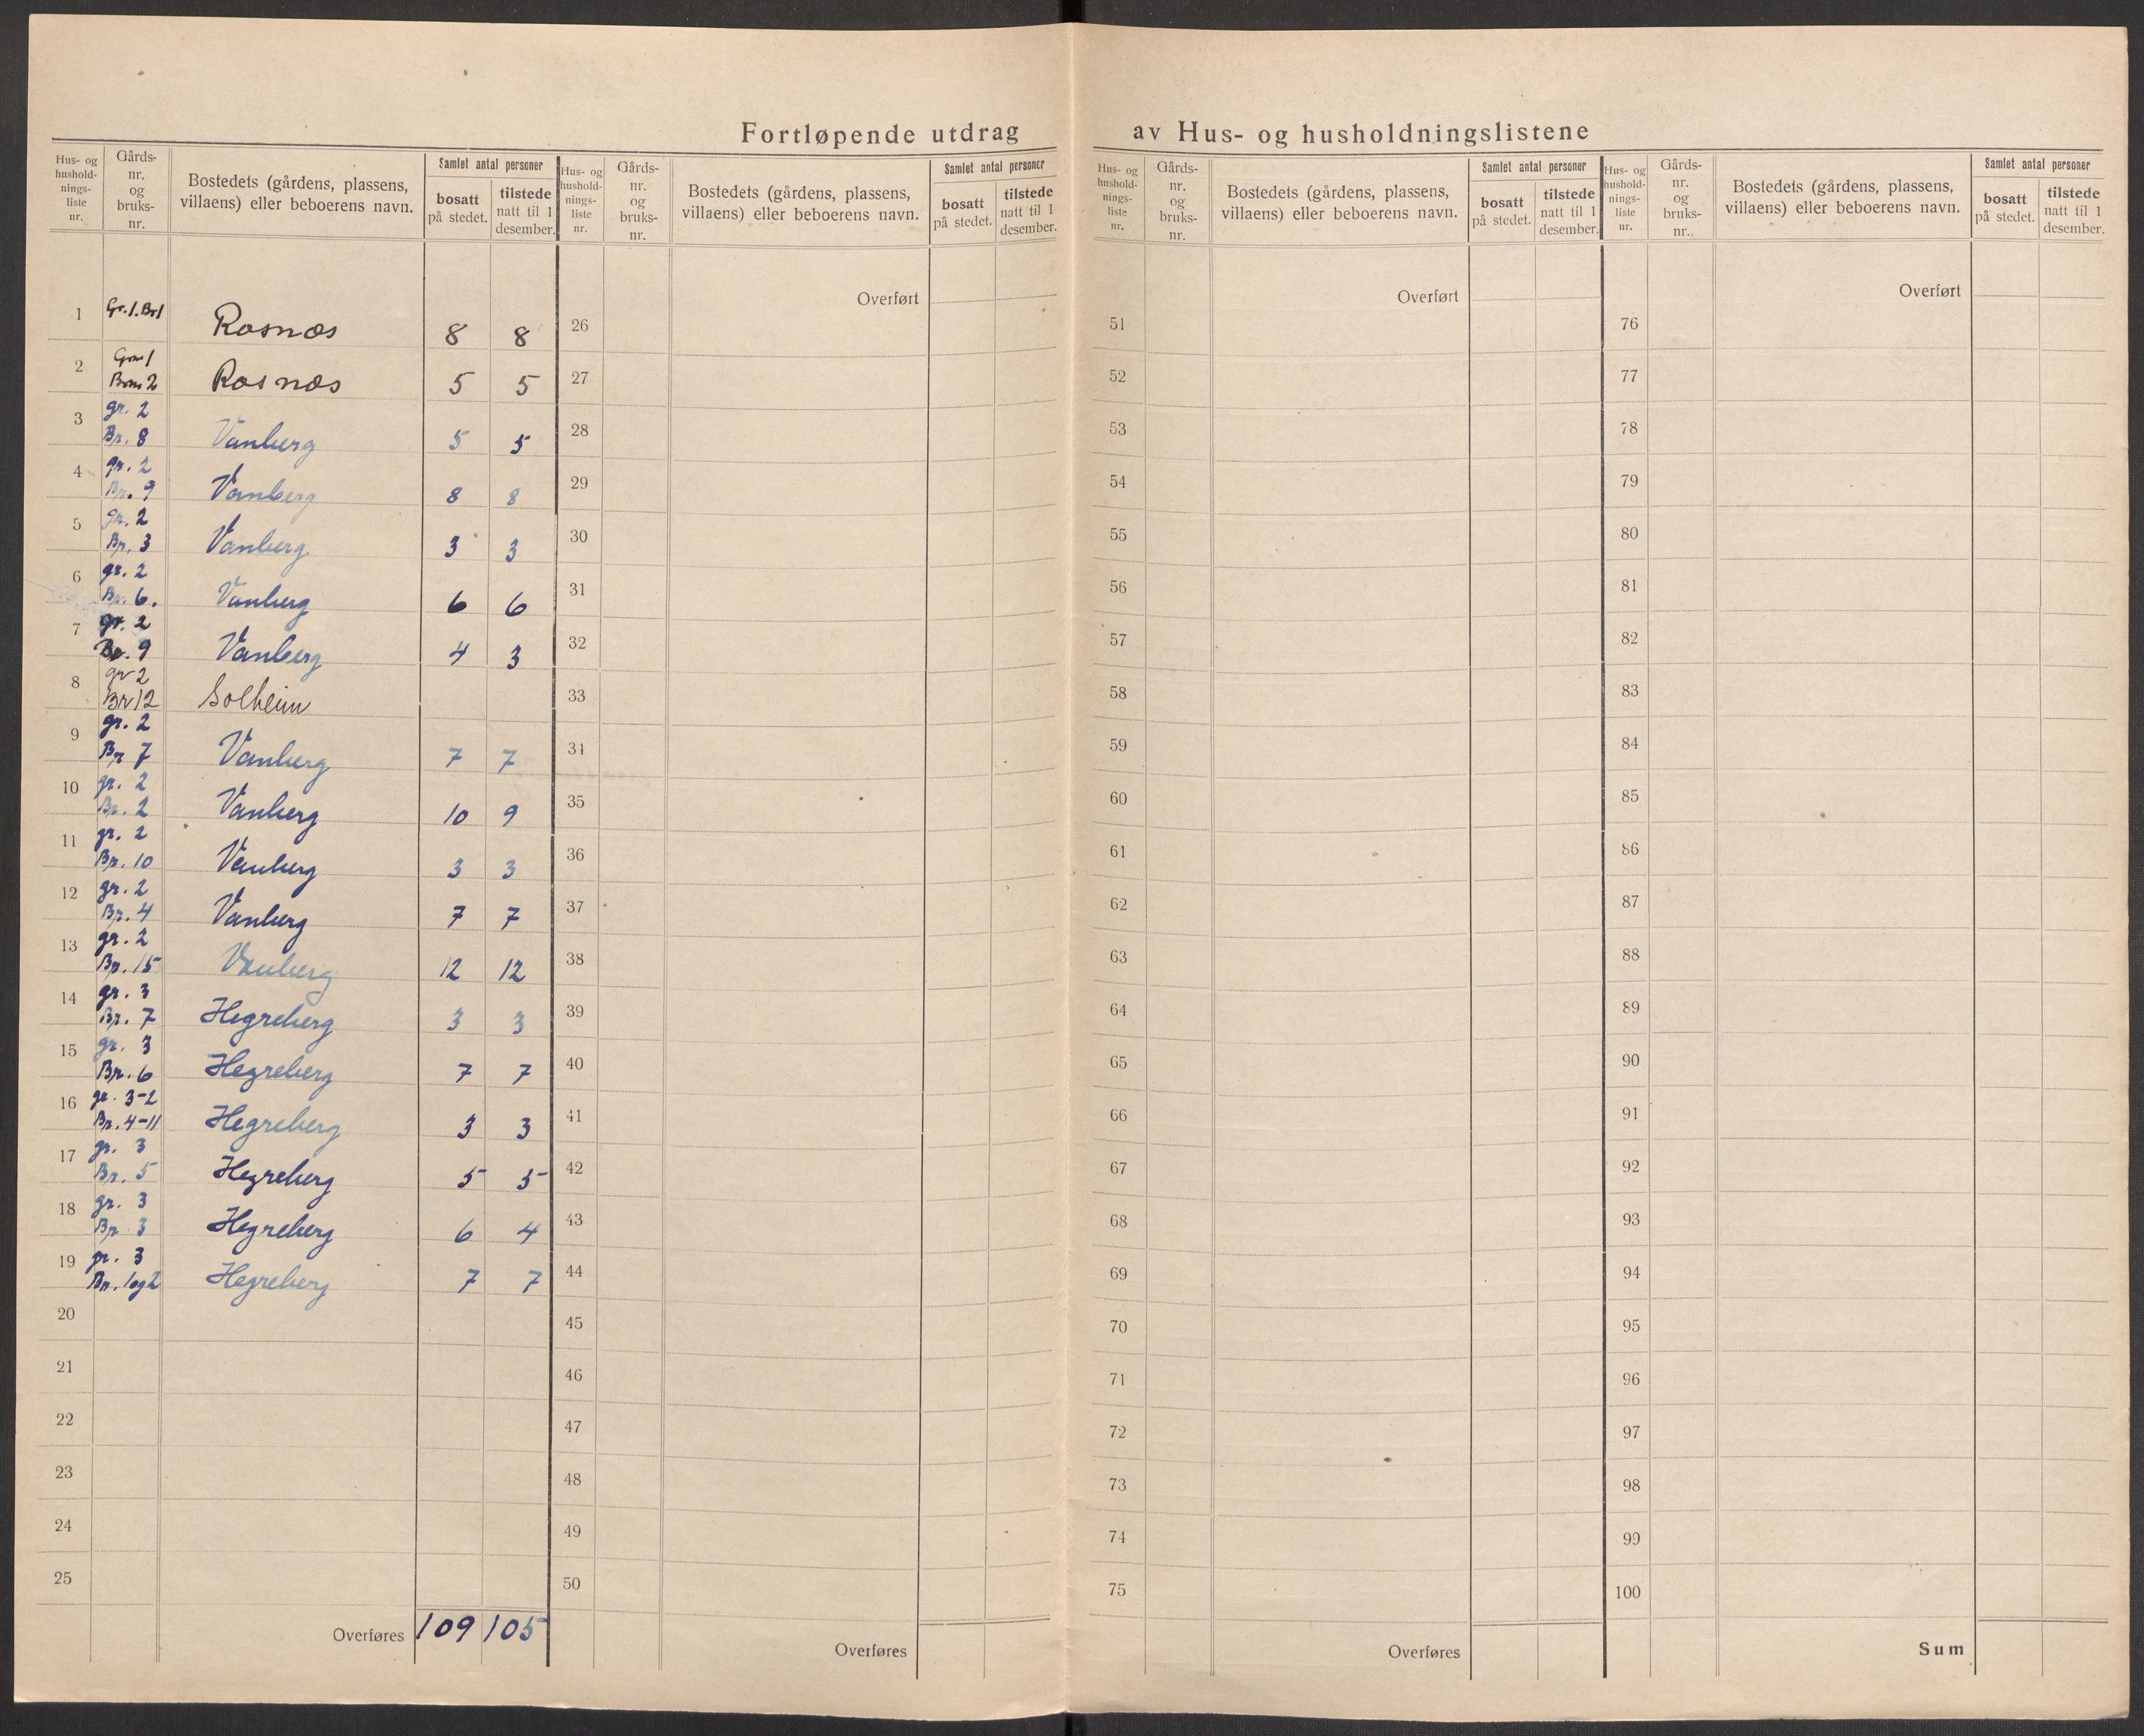 Fortløpende utdrag av Hus- og husholdningslistene
Hus- og
hushold-
nings-
liste
nr.
Gårds-
nr.
og
bruks-
nr.
Bostedets (gårdens, plassens,
villaens) eller beboerens navn.
Samlet antal personer
bosatt
på stedet.
tilstede
natt til 1
desember.
1 Gr. 1. Br 1 Rosnæs 8 8
2 Gnr 1
Brnr 2 Rosnæs 5 5
3 gr. 2
Br. 8 Vanberg 5 5
4 gr. 2
Br. 9 Vanberg 8 8
5 gr. 2
Br. 3 Vanberg 3 3
6 gr. 2
Br. 6. Vanberg 6 6
7 gr. 2
Br. 9 Vanberg 4 3
8 gr 2
Br 12 Solheim
9 gr. 2
Br 7 Vanberg 7 7
10 gr. 2
Br. 2 Vanberg 10 9
11 gr. 2
Br. 10 Vanberg 3 3
12 gr. 2
Br. 4 Vanberg 7 7
13 gr. 2
Br. 15 Vanberg 12 12
14 gr. 3
Br. 7 Hegreberg 3 3
15 gr. 3
Br. 6 Hegreberg 7 7
16 gr. 3-2
Br. 4-11 Hegreberg 3 3
17 gr. 3
Br. 5 Hegreberg 5 5
18 gr. 3
Br. 3 Hegreberg 6 4
19 gr. 3
Br. 1 og 2 Hegreberg 7 7
20
21
22
23
24
25
Overføres 109 105
Hus- og
hushold-
nings-
liste
nr.
Gårds-
nr.
og
bruks-
nr.
Bostedets (gårdens, plassens,
villaens) eller beboerens navn.
Samlet antal personer
bosatt
på stedet.
tilstede
natt til 1
desember.
Overført
26
27
28
29
30
31
32
33
31
35
36
37
38
39
40
41
42
43
44
45
46
47
48
49
50
Overføres
Hus- og
hushold-
nings-
liste
nr.
Gårds-
nr.
og
bruks-
nr.
Bostedets (gårdens, plassens,
villaens) eller beboerens navn.
Samlet antal personer
bosatt
på stedet.
tilstede
natt til 1
desember.
Overført
51
52
53
54
55
56
57
58
59
60
61
62
63
64
65
66
67
68
69
70
71
72
73
74
75
Overføres
Hus- og
hushold-
nings-
liste
nr.
Gårds-
nr.
og
bruks-
nr.
Bostedets (gårdens, plassens,
villaens) eller beboerens navn.
Samlet antal personer
bosatt
på stedet.
tilstede
natt til 1
desember.
Overført
76
77
78
79
80
81
82
83
84
85
86
87
88
89
90
91
92
93
94
95
96
97
98
99
100
Sum